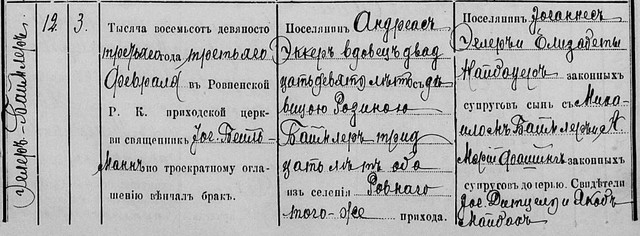 12.
3.
Тысяча восемьсот девяносто
третьяго года третьяго
Февраля въ Ровненской
Р. К. приходской церк-
ви священникъ Іос. Бейль-
маннъ по троекратному огла-
шенію вѣнчалъ бракъ.
Поселянинъ Андреасъ
вдовецъ двад
цать девять лѣтъ съ дѣ
вицою
Баймлеръ трид
цать лѣтъ оба
изъ селенія Ровнаго
того-же прихода.
Поселянинъ Іоаннесъ
и Елизаветы
законныхъ
супруговъ сынъ съ Миха
иломъ Баймлеръ и
Маріи законныхъ
супруговъ дочерью. Свидѣтели
Іос. и Якобъ